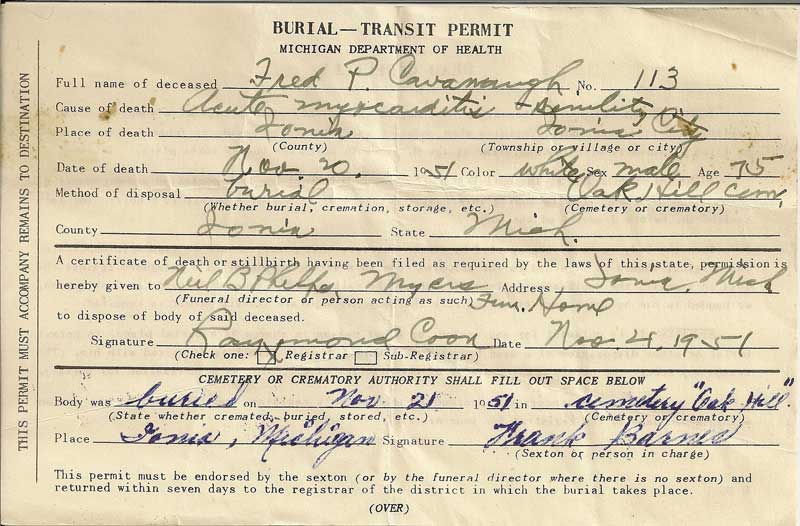 BURIAL—TRANSIT PERMIT
MICHIGAN DEPARTMENT OF HEALTH
THIS PERMIT MUST ACCOMPANY REMAINS TO DESTINATION
Full name of deceased Fred P. Cavanaugh No. 113
Cause of death Acute myocarditis + senility
Place of death Ionia Ionia City
(County) (Township or village or city)
Date of death Nov. 20, 1951 Color white Sex male Age 75
Method of disposal burial Oak Hill Cem.
(Whether burial, cremation, storage, etc.) (Cemetery or crematory)
County Ionia State Mich.
A certificate of death or stillbirth having been filed as required by the laws of this state, permission is
hereby given to Neil B Phelps Myers Address Ionia, Mich
(Funeral director or person acting as such) Fun. Home
to dispose of body of said deceased.
Signature Raymond Coon Date Nov 21, 1951
(Check one: X Registrar Sub-Registrar)
CEMETERY OR CREMATORY AUTHORITY SHALL FILL OUT SPACE BELOW
Body was buried on Nov 21 1951 in cemetery "Oak Hill".
(State whether cremated, buried, stored, etc.) (Cemetery or crematory)
Place Ionia, Michigan Signature Frank Barnes
(Sexton or person in charge)
This permit must be endorsed by the sexton (or by the funeral director where there is no sexton) and
returned within seven days to the registrar of the district in which the burial takes place.
(OVER)